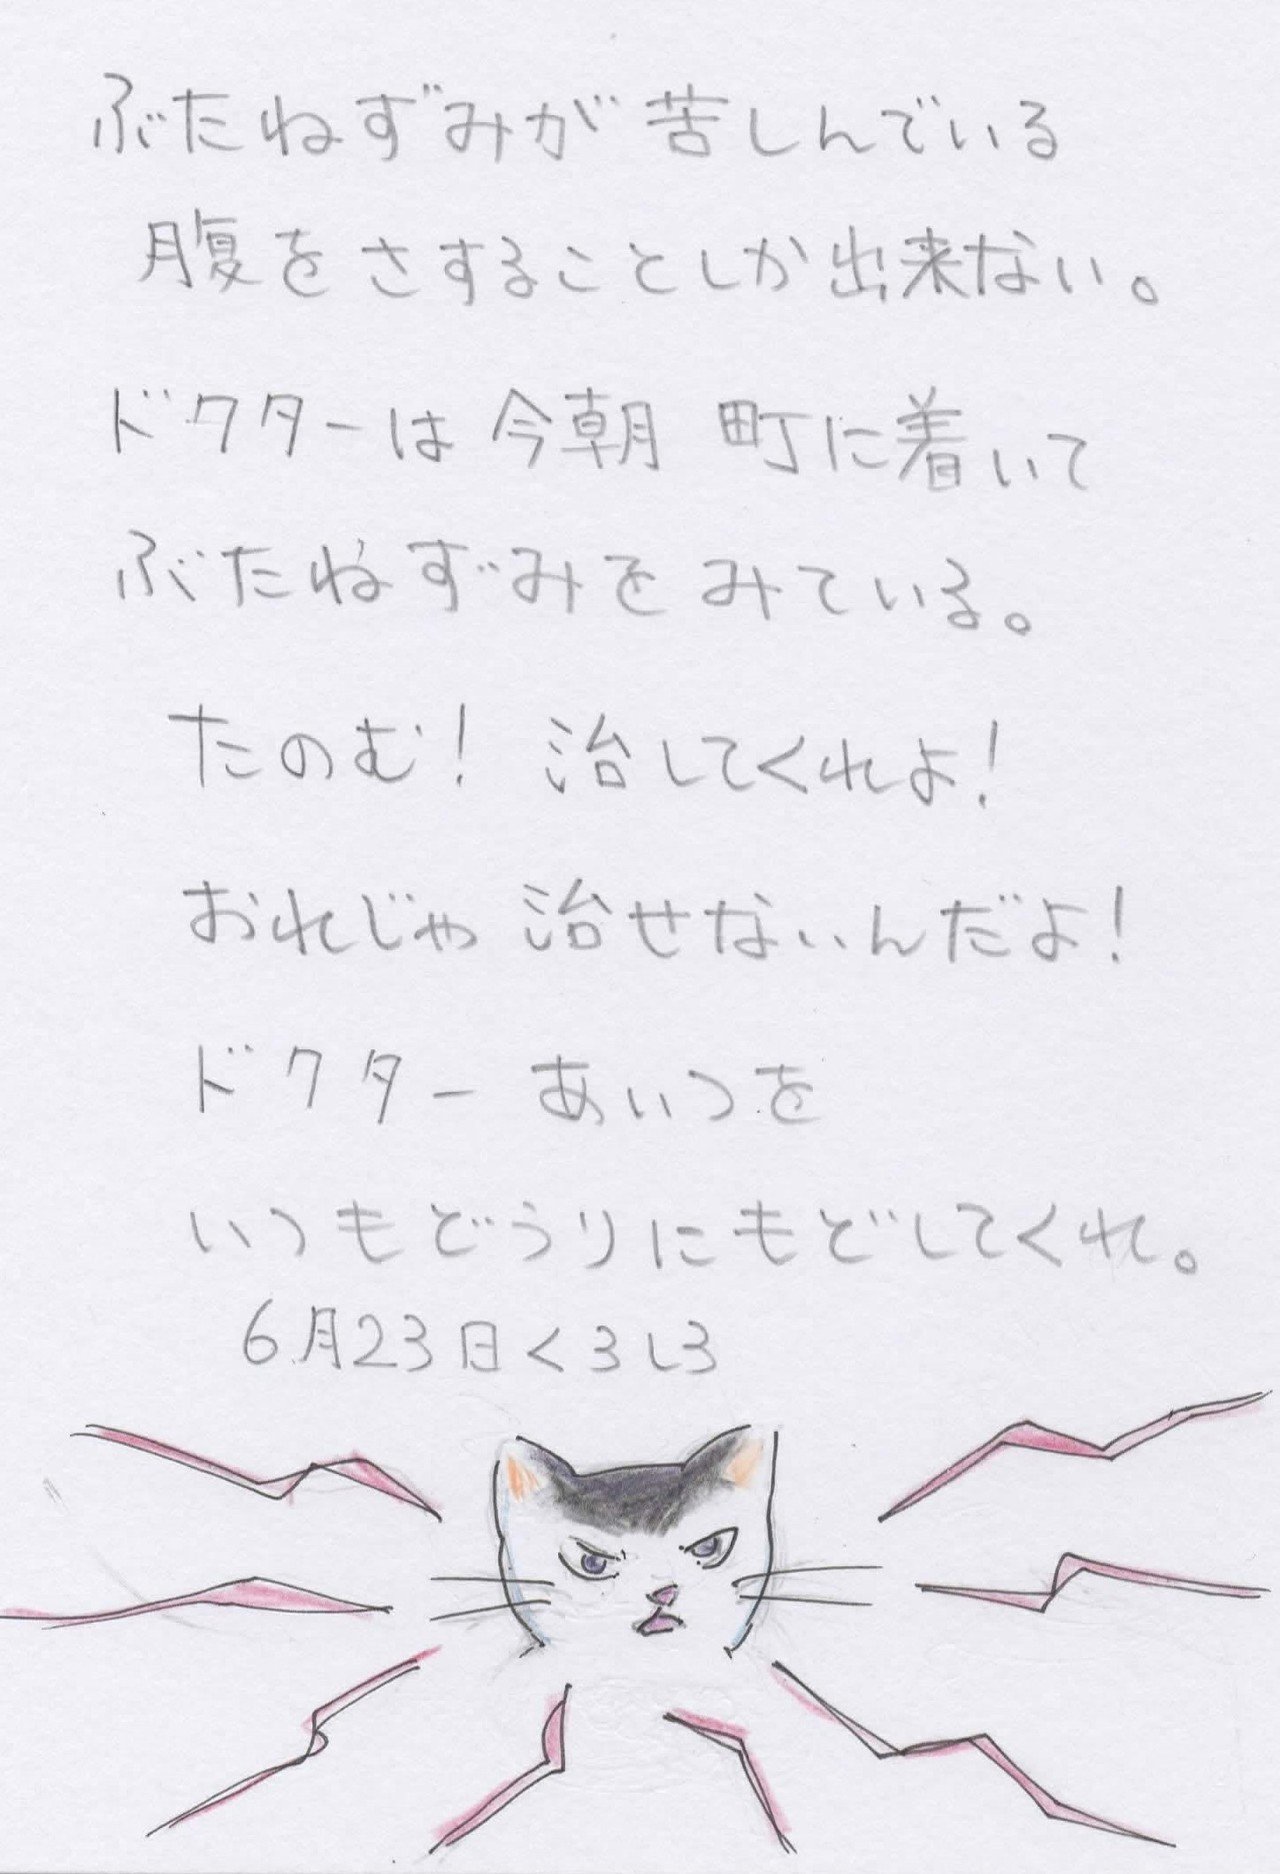 ぶたねずみが苦しんでいる
腹をさすることしか出来ない。
ドクターは今朝 町に着いて
ぶたねずみをみている。
たのむ! 治してくれよ!
おれじゃ治せないんだよ!
ドクターあいつを
いつもどうりにもどしてくれ。
6月23日くろしろ